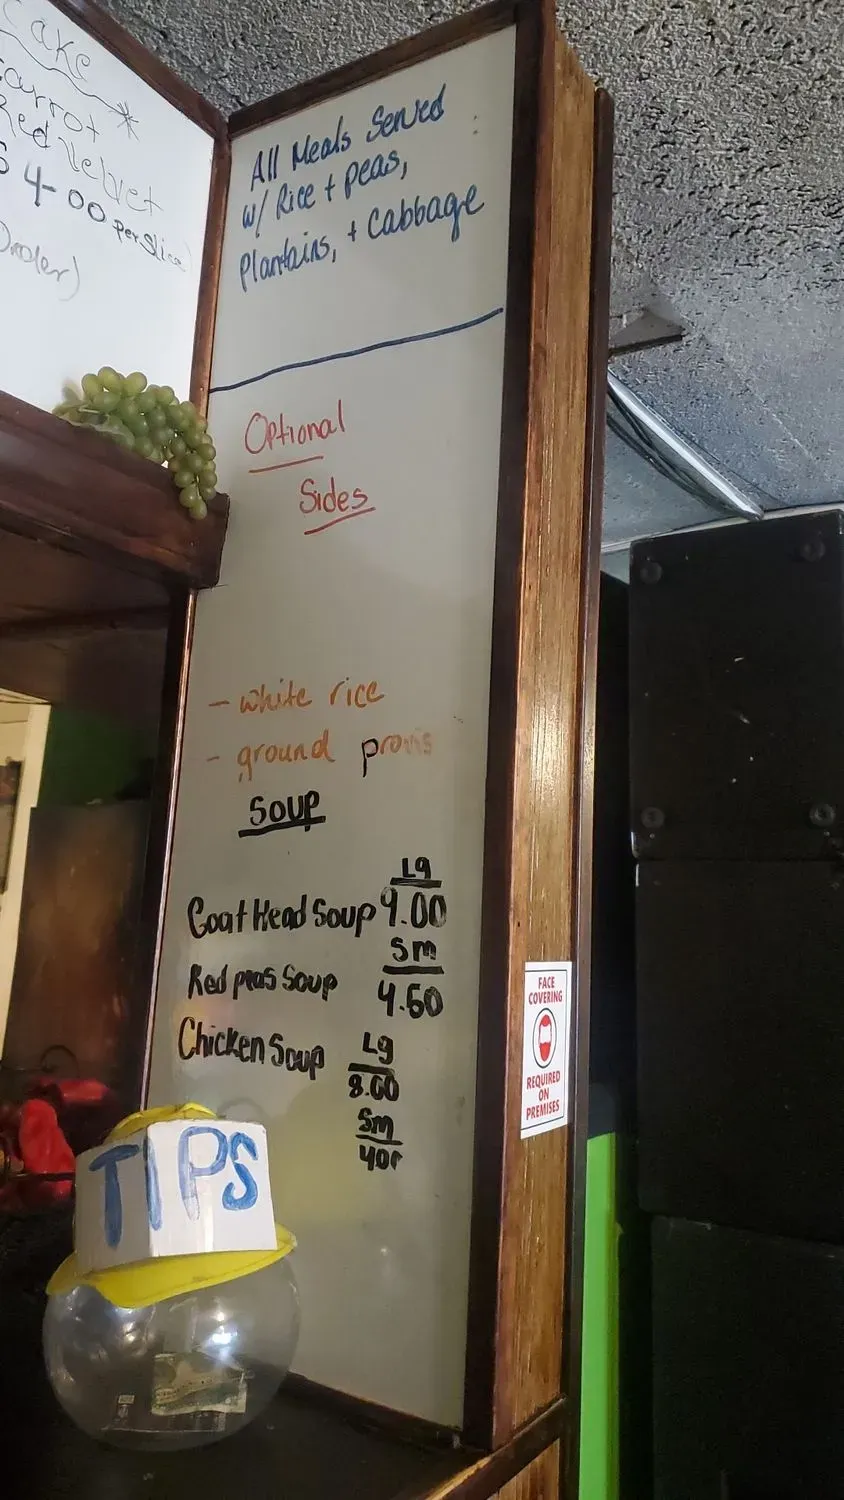 Cake
Carrot
Red Velvet
$4-00 per slice
Order)
All Meals Served
w/ Rice + peas,
Plantains, + Cabbage
Optional
Sides
- white rice
- ground provis
Soup
Lg
Goat Head Soup 9.00
Sm
Red peas Soup 4.50
Chicken Soup Lg
8.00
Sm
400
TIPS
FACE
COVERING
REQUIRED
ON
PREMISES